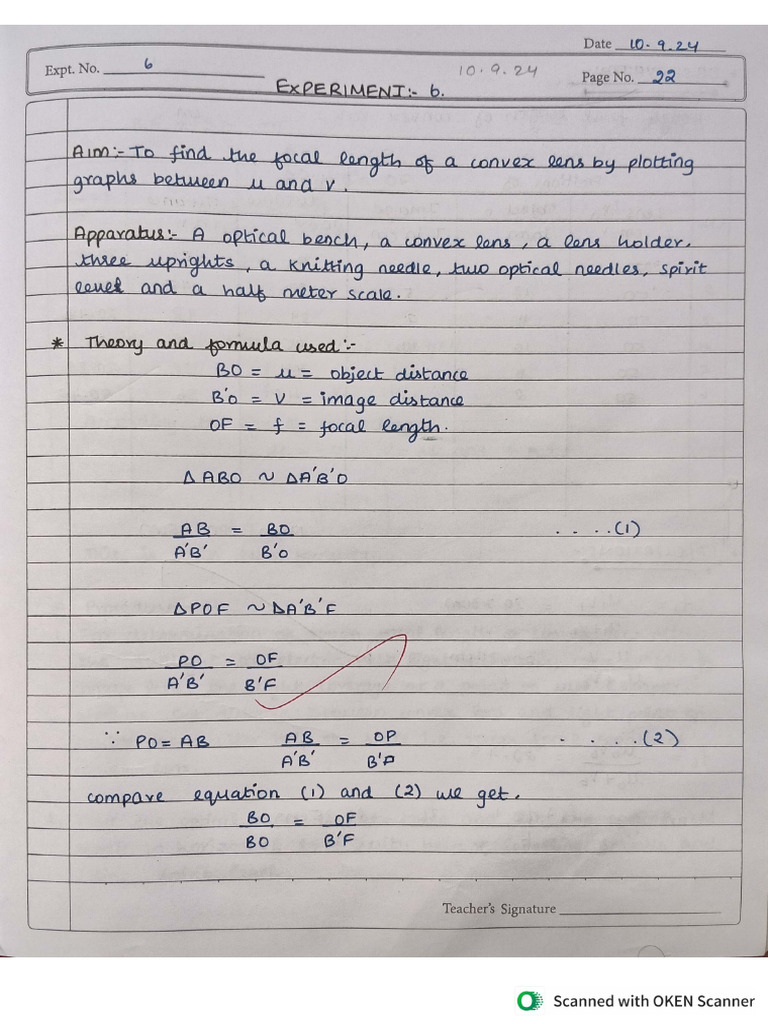 Date 10.9.24
Expt. No. 6
10.9.24
Page No. 22
EXPERIMENT:- 6.
Aim:- To find the focal length of a convex lens by plotting
graphs between u and v.
Apparatus:- A optical bench, a convex lens, a lens holder.
three uprights, a knitting needle, two optical needles, spirit
level and a half meter scale.
* Theory and formula used:-
BO = u = object distance
B'O = V = image distance
OF = f = focal length.
Δ ABO ~ ΔA'B'O
AB = BO ....(1)
A'B' B'O
ΔPOF ~ ΔA'B'F
PO = OF
A'B' B'F
∵ PO = AB AB = OP ....(2)
A'B' B'P
compare equation (1) and (2) we get.
BO = OF
BO B'F
Teacher's Signature
Scanned with OKEN Scanner